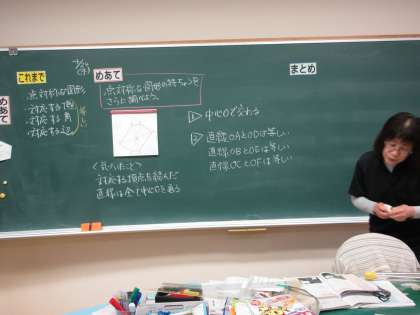 これまで
・点対称な図形
・対応する
・対応する角
・対応する辺
等しい
めあて
めあて
点対称な図形の特ちょうを
さらに調べよう。
<気づいたこと>
・対応する頂点を結んだ
直線は全て中心Oを通る
① 中心Oで交わる
② 直線OAとODは等しい
直線OBとOEは等しい
直線OCとOFは等しい
まとめ